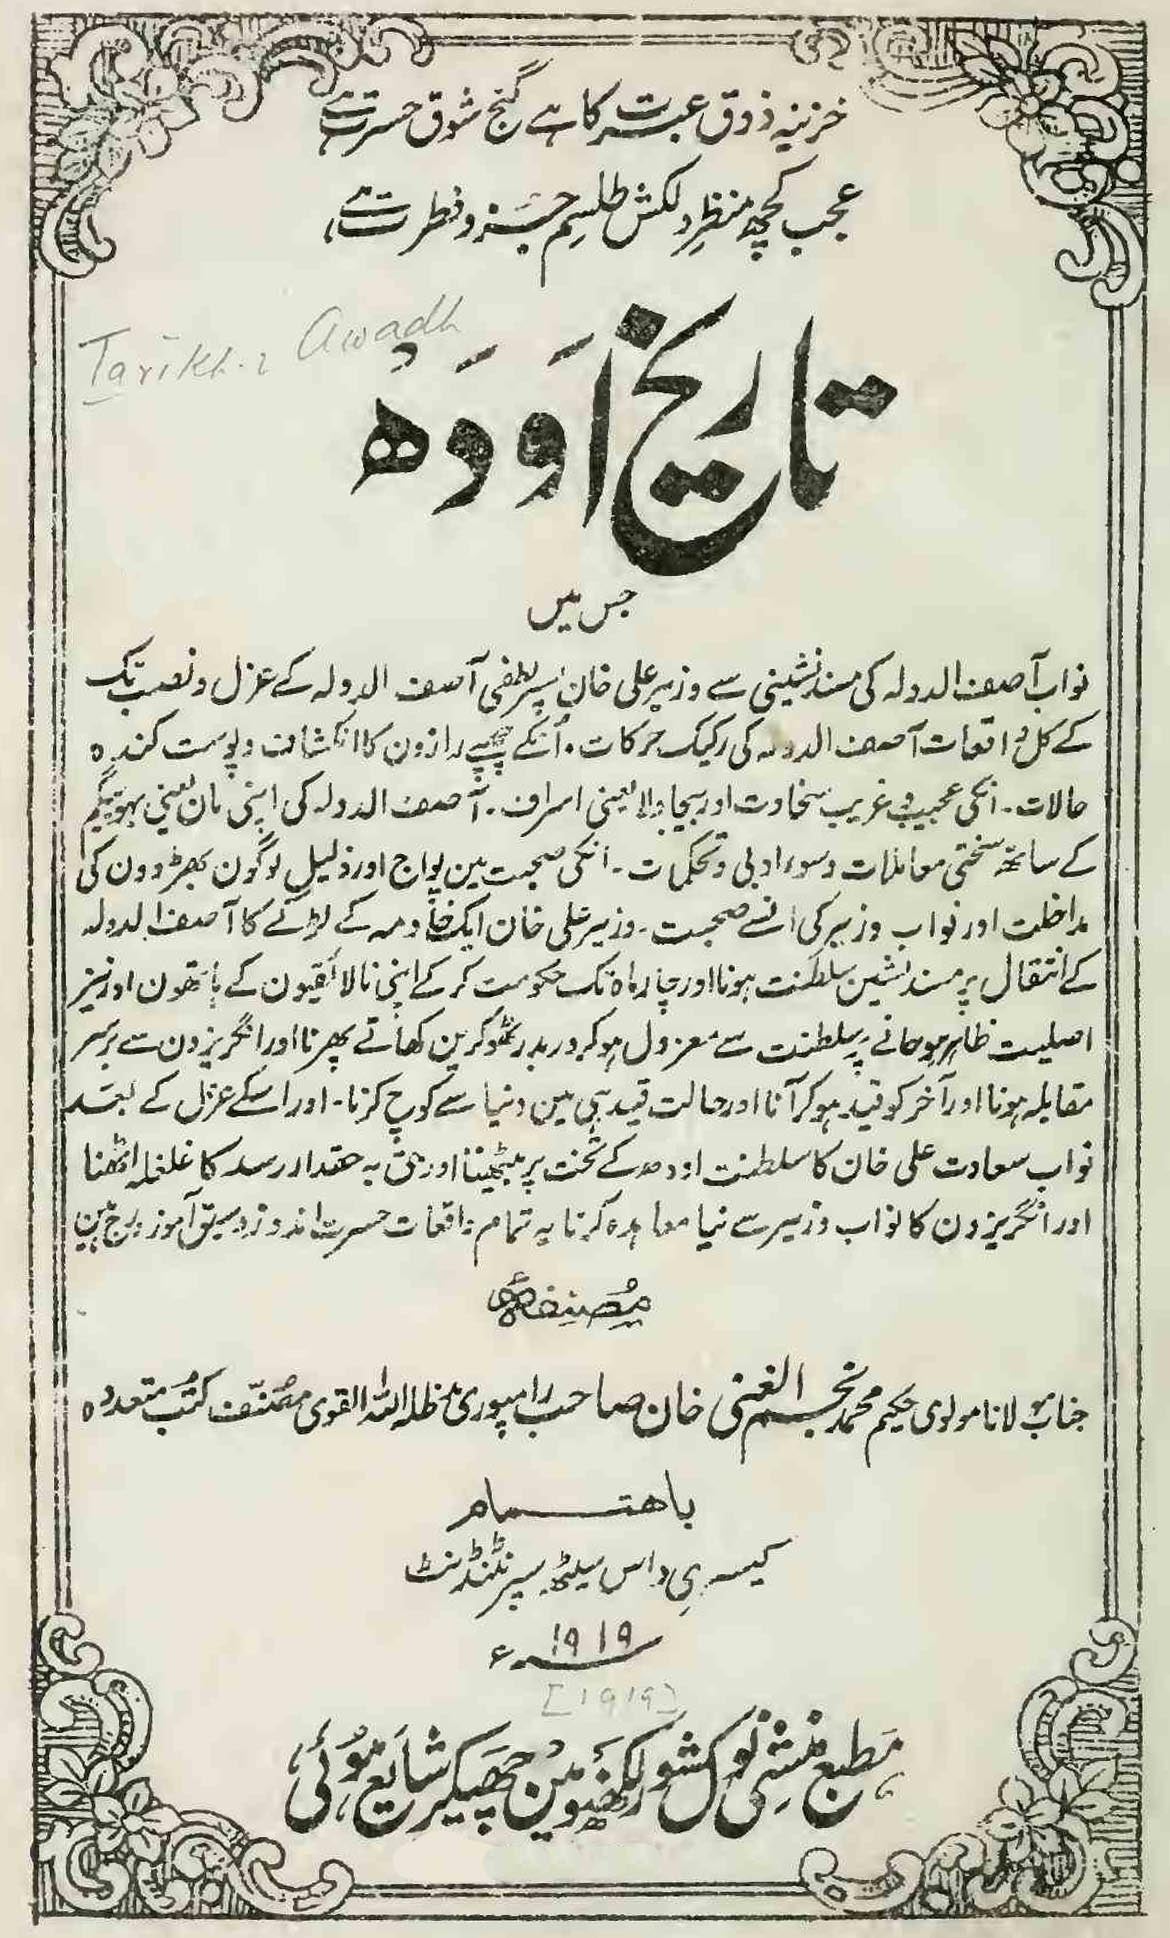 خزینہ ذوق عبرت کا ہے گنج شوق حسرت ہے
عجب کچھ منظر دلکش طلسم جذب و فطرت ہے
Tarikh-i Awadh
تاریخ اَودَھ
جس میں
نواب آصف الدولہ کی مسند نشینی سے وزیر علی خان پسر لطفی آصف الدولہ کے عزل و نصب تک
کے کل واقعات آصف الدولہ کی رکیک حرکات۔ اُنکے چھپے رازون کا انکشاف و پوست کندہ
حالات۔ انکی عجیب و غریب سخاوت اور بیجا و لایعنی اسراف۔ آصف الدولہ کی اپنی مان یعنی بہو بیگم
کے ساتھ سختی معاملات و سوء ادبی و تحکمات۔ انکی صحبت مین پواج اور ذلیل لوگون بھڑوون کی
مداخلت اور نواب وزیر کی انسے صحبت۔ وزیر علی خان ایک خادمہ کے لڑکے کا آصف الدولہ
کے انتقال پر مسند نشین سلطنت ہونا اور چار ماہ تک حکومت کر کے اپنی نالائقیون کے ہاتھون اور نیز
اصلیت ظاہر ہو جانے پر سلطنت سے معزول ہو کر دربدر ٹھوکرین کھاتے پھرنا اور انگریزون سے برسر
مقابلہ ہونا اور آخر کو قید ہو کر آنا اور حالت قید ہی مین دنیا سے کوچ کرنا۔ اور اسکے عزل کے بعد
نواب سعادت علی خان کا سلطنت اودھ کے تخت پر بیٹھنا اور حق بہ حقدار رسد کا غلغلہ اٹھنا
اور انگریزون کا نواب وزیر سے نیا معاہدہ کرنا یہ تمام واقعات حسرت اندوز و سبق آموز درج ہین
مُصنفہٴ
جناب مولانا مولوی حکیم محمد نجم الغنی خان صاحب رامپوری مدظلہ اللہ القوی مصنّف کتب متعددہ
باہتمام
کیسری داس سیٹھ سپرنٹنڈنٹ
۱۹۱۹ء
[1919]
مطبع منشی نولکشور لکھنؤ مین چھپکر شایع ہوئی